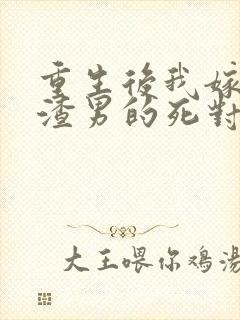 重生後我嫁
渣男的死對
大王喂你鸡湯